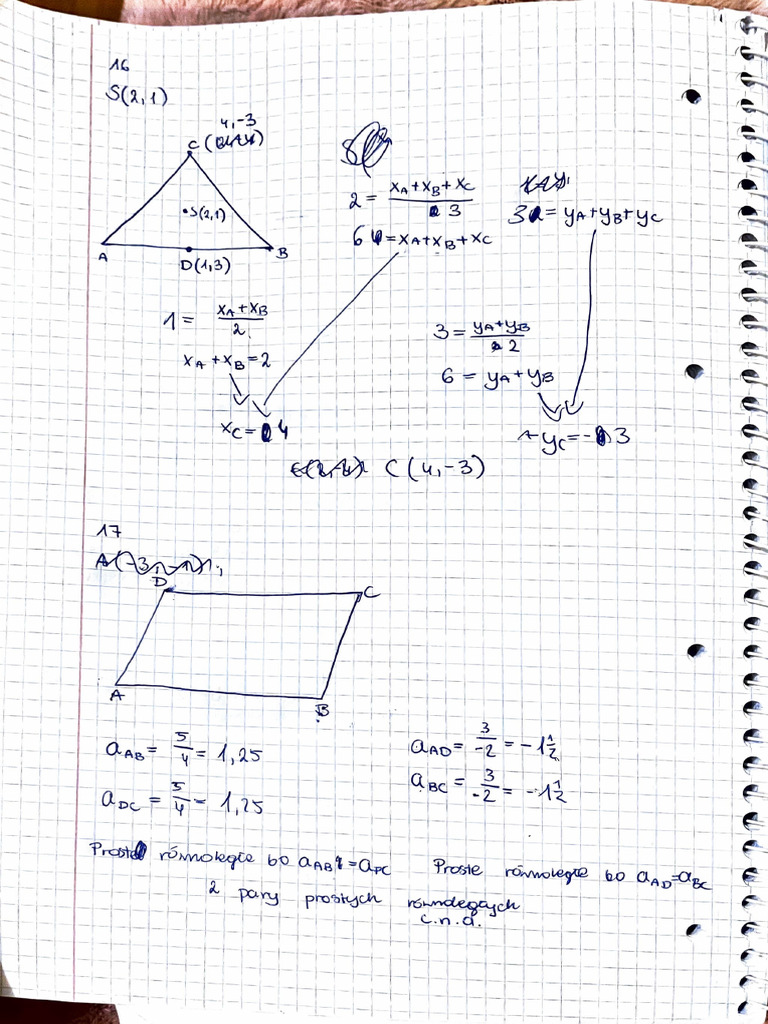 16
S(2,1)
4,-3
C
S(2,1)
A
D(1,3)
B
2 = (xA+xB+xC)/3
6 = xA+xB+xC
3 = yA+yB+yC
1 = (xA+xB)/2
xA+xB=2
3 = (yA+yB)/2
6 = yA+yB
xC = 4
yC = -3
C(4,-3)
17
D
C
A
B
aAB = 5/4 = 1,25
aAD = 3/-2 = -1 1/2
aDC = 5/4 = 1,25
aBC = 3/-2 = -1 1/2
Proste równoległe bo aAB = aDC
Proste równoległe bo aAD=aBC
2 pary prostych równoległych
c.n.d.